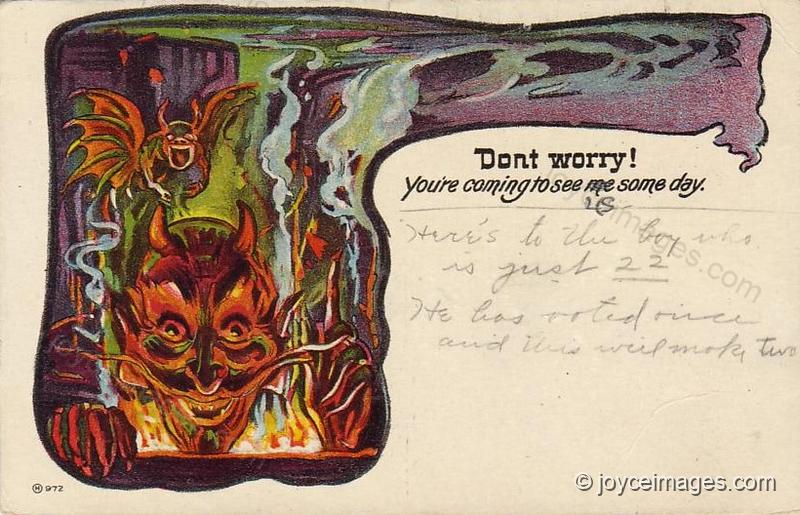 Dont worry!
You're coming to see me some day.
us
Here's to the boy who
is just 22
He has voted once
and this will make two
Ⓗ 972
joyceimages.com
© joyceimages.com